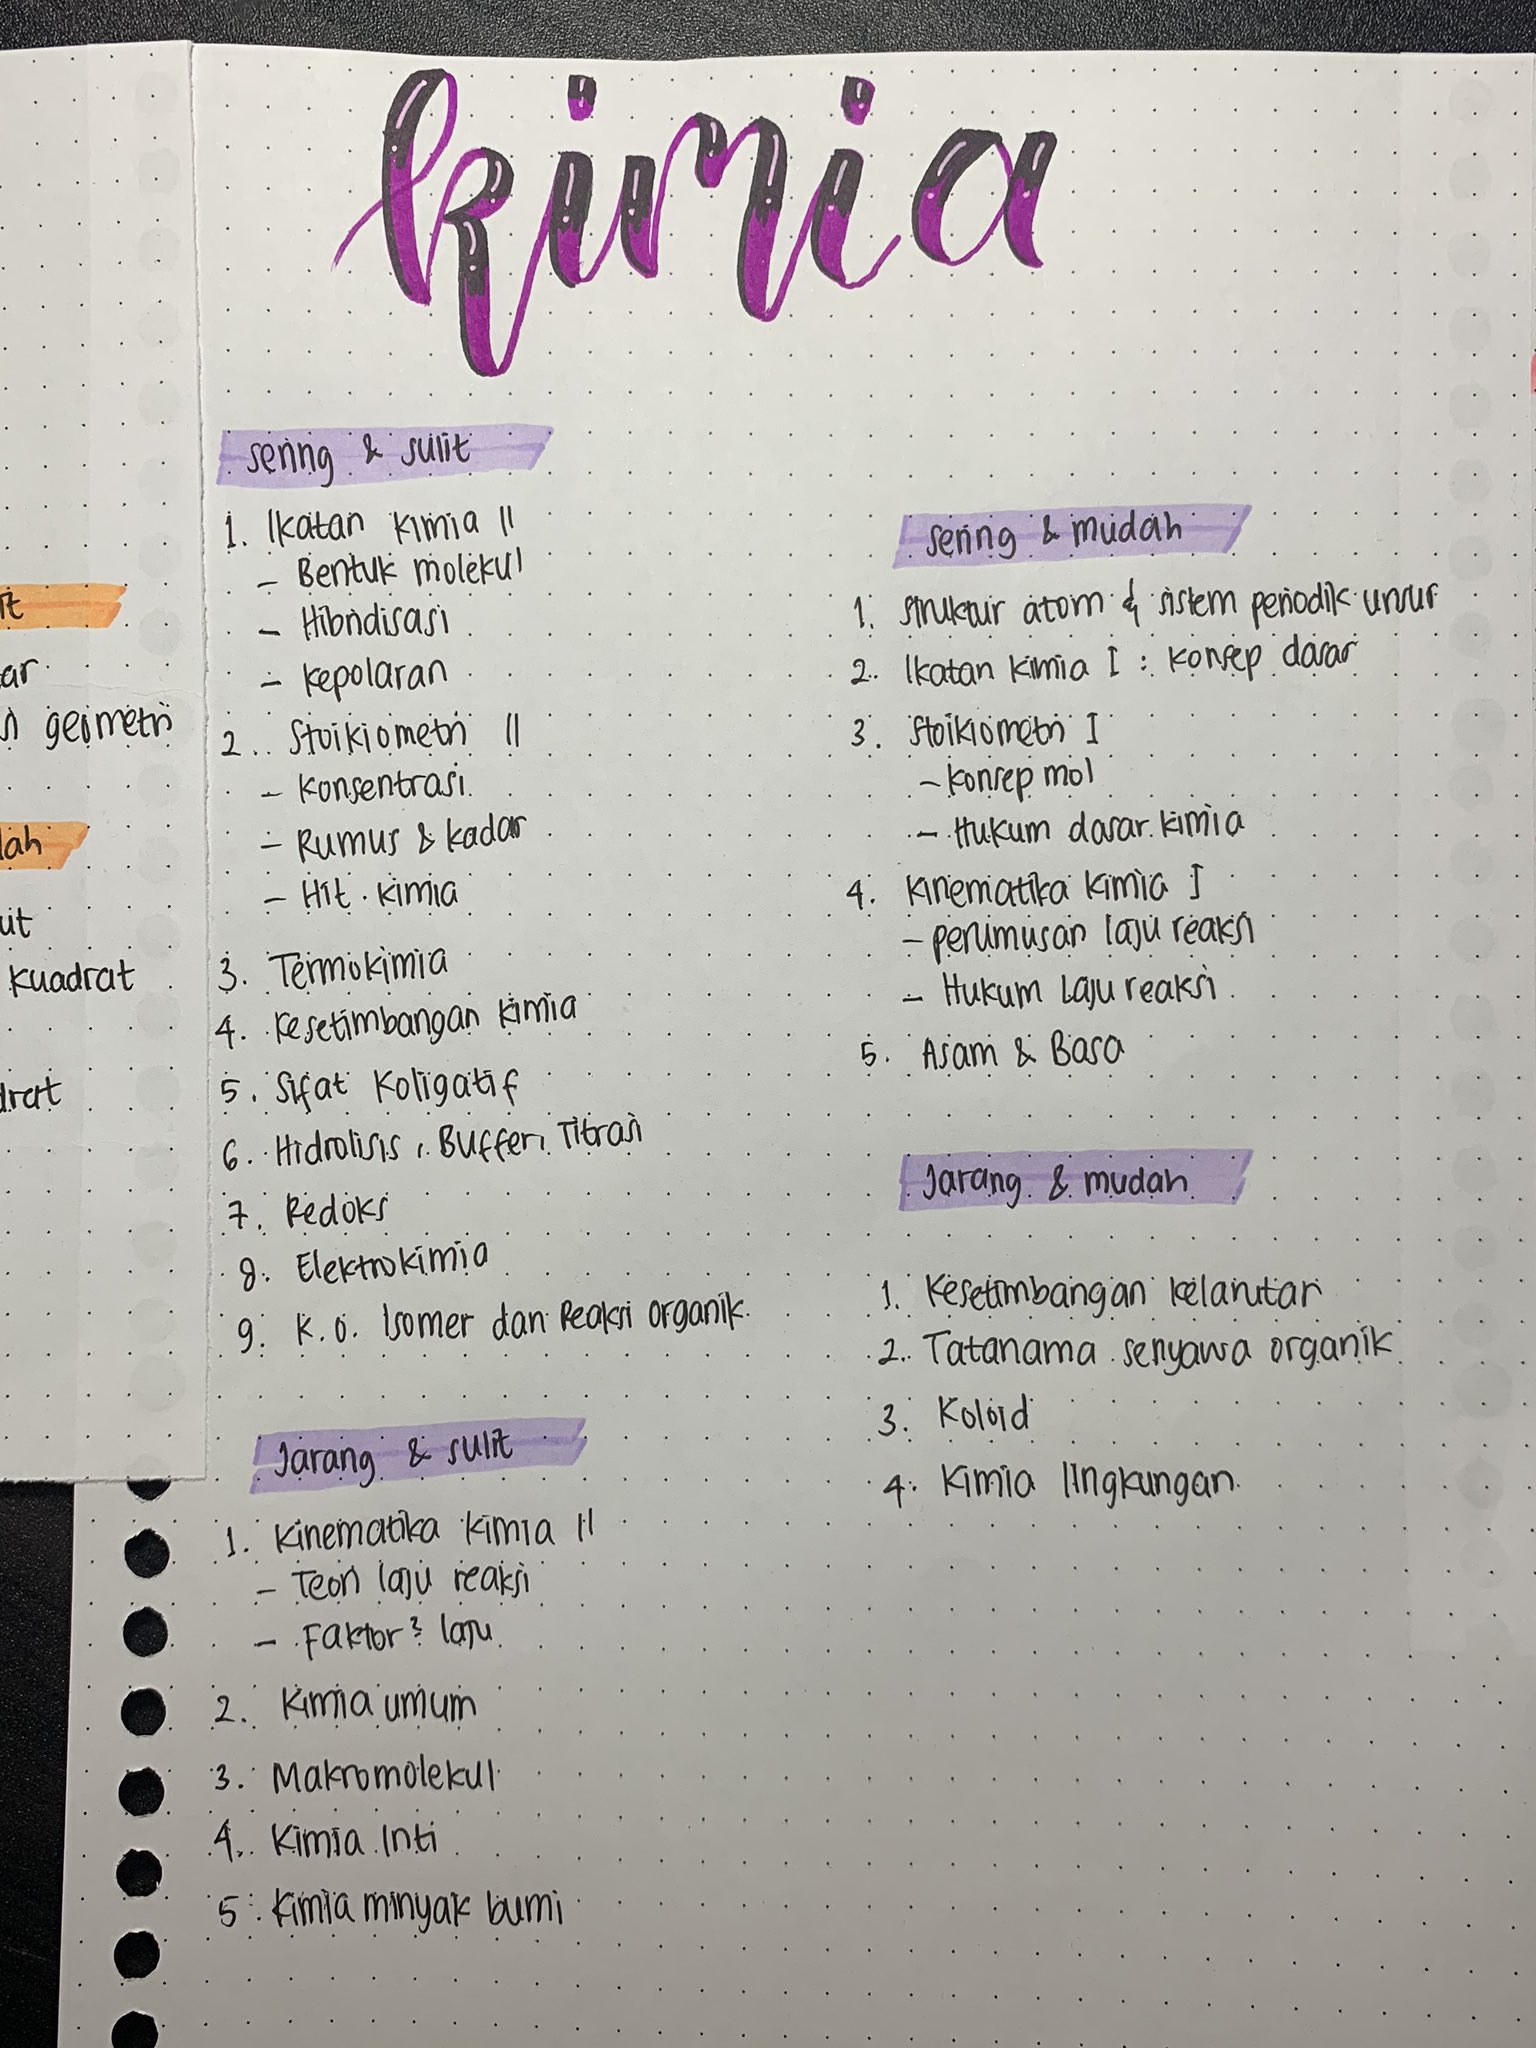 kimia
sering & sulit
1. Ikatan kimia II
- Bentuk molekul
- Hibridisasi
- kepolaran
2. Stoikiometri II
- Konsentrasi
- Rumus & kadar
- Hit. kimia
3. Termokimia
4. Kesetimbangan kimia
5. Sifat Koligatif
6. Hidrolisis, Buffer, Titrasi
7. Redoks
8. Elektrokimia
9. K.O. Isomer dan Reaksi organik
Jarang & sulit
1. Kinematika kimia II
- Teori laju reaksi
- Faktor² laju
2. Kimia umum
3. Makromolekul
4. Kimia Inti
5. Kimia minyak bumi
sering & mudah
1. Struktur atom & sistem periodik unsur
2. Ikatan kimia I : konsep dasar
3. Stoikiometri I
- konsep mol
- Hukum dasar kimia
4. Kinematika kimia I
- perumusan laju reaksi
- Hukum Laju reaksi
5. Asam & Basa
Jarang & mudah
1. Kesetimbangan kelarutan
2. Tatanama senyawa organik
3. Koloid
4. Kimia lingkungan
ar
geometri
lah
ut
kuadrat
drat